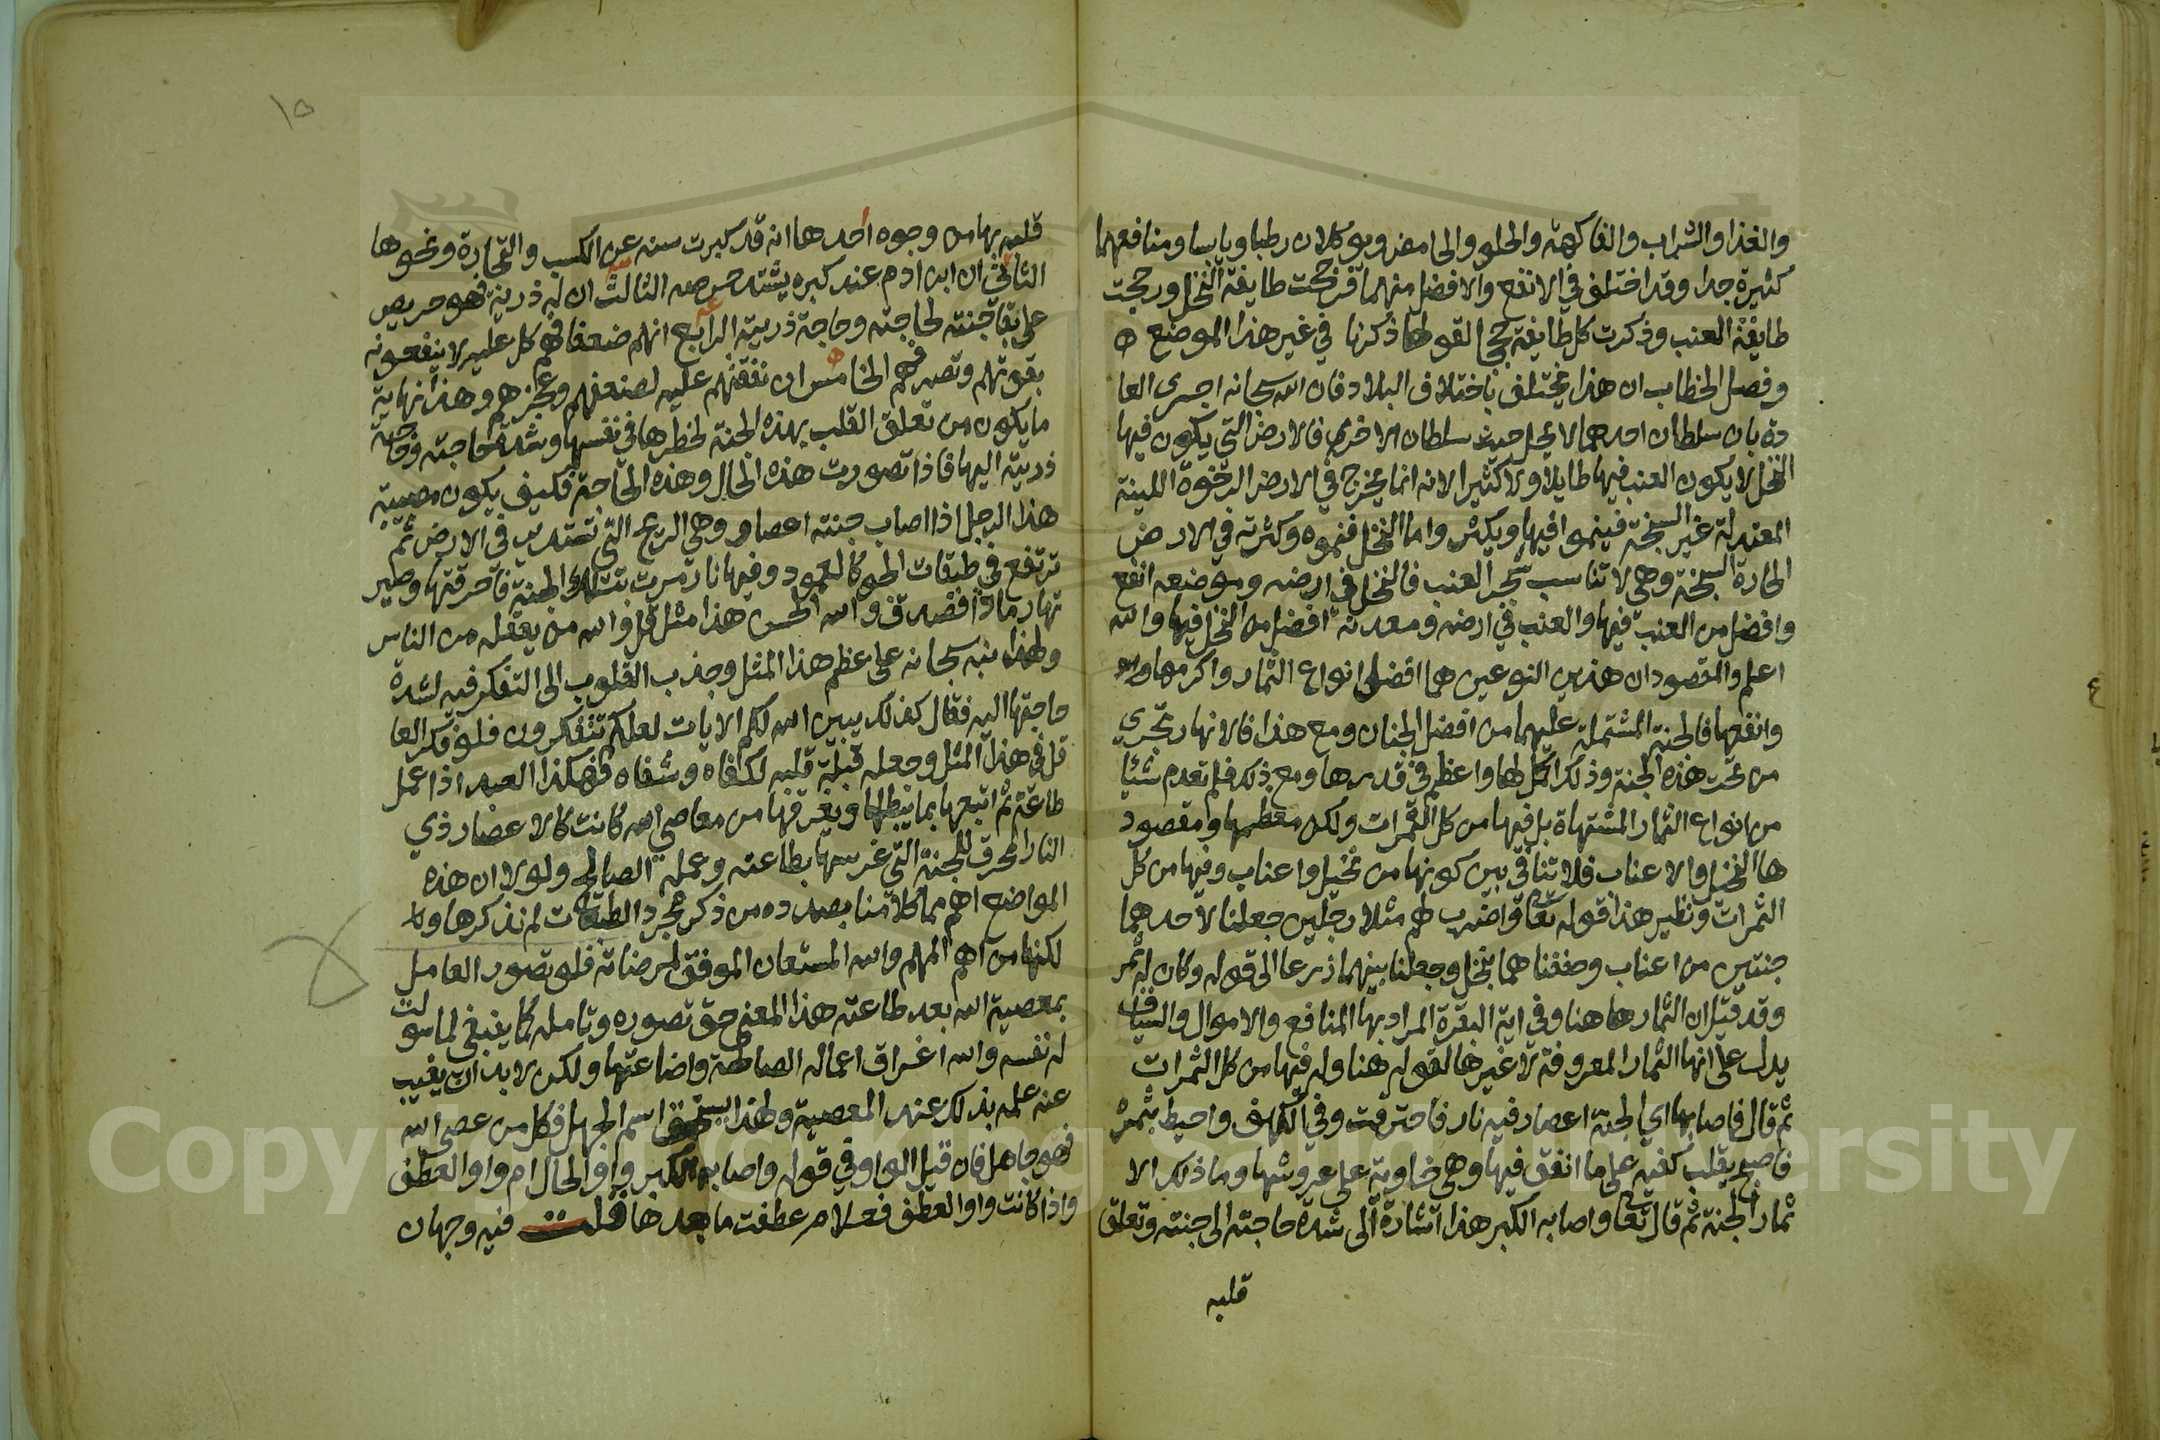 والغذا والشراب والفاكهة والحلو والحامض ويوكلان رطبا ويابسا ومنافعهما
كثيرة جدا وقد اختلف في الانفع والافضل منهما فرجحت طايفة النخل ورجحت
طايفة العنب وذكرت كل طايفة حججا لقولها ذكرناها في غير هذا الموضع ه
وفصل الخطاب ان هذا يختلف باختلاف البلاد فان الله سبحانه اجرى العا
دة بان سلطان احدهما لا يحل حيث سلطان الاخر فالارض التي يكون فيها
النخل لا يكون العنب فيها طايلا ولا كثيرا لانه انما يخرج في الارض الرخوة اللينة
المعتدلة غير السبخة فينموا فيها ويكثر واما النخل فنموه وكثرته في الارض
الحارة السبخة وهي لا تناسب شجر العنب فالنخل في ارضه وموضعه انفع
وافضل من العنب فيها والعنب في ارضه ومعدنه افضل من النخل فيها والله
اعلم والمقصود ان هذين النوعين هما افضل انواع الثمار واكرمها
وانفعها فالجنة المشتملة عليهما من افضل الجنان ومع هذا فالانهار تجري
من تحت هذه الجنة وذلك اكمل لها واعظم في قدرها ومع ذلك فلم تعدم شيئا
من انواع الثمار المشتهاة بل فيها من كل الثمرات ولكن معظمها ومقصود
ها النخيل والاعناب فلا تنافي بين كونها من نخيل واعناب وفيها من كل
الثمرات ونظير هذا قوله تعالى واضرب لهم مثلا رجلين جعلنا لاحدهما
جنتين من اعناب وحففناهما بنخل وجعلنا بينهما زرعا الى قوله وكان له ثمر
وقد قيل ان الثمار هاهنا وفي اية البقرة المراد بها المنافع والاموال والسياق
يدل على انها الثمار المعروفة لا غيرها لقوله هنا وله فيها من كل الثمرات
ثم قال فاصابها اي الجنة اعصار فيه نار فاحترقت وفي الكهف واحيط بثمره
فاصبح يقلب كفيه على ما انفق فيها وهي خاوية على عروشها وما ذلك الا
ثمار الجنة ثم قال تعالى واصابه الكبر هذا اشارة الى شدة حاجته الى جنته وتعلق
قلبه
١٥
قلبه بها من وجوه احدها انه قد كبرت سنه عن الكسب والتجارة ونحوها
الثاني ان ابن ادم عند كبره يشتد حرصه الثالث ان له ذرية فهو حريص
على بقا جنته لحاجته وحاجة ذريته الرابع انهم ضعفا فهم كل عليه لا ينفعونه
بقوتهم وتصرفهم الخامس ان نفقتهم عليه لضعفهم وعجزهم وهذا نهاية
ما يكون من تعلق القلب بهذه الجنة لخطرها في نفسها وشدة حاجته وحاجة
ذريته اليها فاذا تصورت هذه الحال وهذه الحاجة فكيف يكون مصيبة
هذا الرجل اذا اصاب جنته اعصار وهي الريح التي تستدير في الارض ثم
ترتفع في طبقات الجو كالعمود وفيها نار مرت بتلك الجنة فاحرقتها وصير
تها رمادا فصدق والله الحسن هذا مثل قل والله من يعقله من الناس
ولهذا نبه سبحانه على عظم هذا المثل وجذب القلوب الى التفكر فيه لشدة
حاجتها اليه فقال كذلك يبين الله لكم الايات لعلكم تتفكرون فلو فكر العا
قل في هذا المثل وجعله قبلة قلبه لكفاه وشفاه فهكذا العبد اذا عمل
طاعة ثم اتبعها بما يبطلها ويغرقها من معاصي الله كانت كالاعصار ذي
النار المحرق للجنة التي غرسها بطاعته وعمله الصالح ولولا ان هذه
المواضع اهم مما كلامنا بصدده من ذكر مجرد الطبقات لم نذكرها
لكنها من اهم المهم والله المستعان الموفق لمرضاته فلو تصور العامل
بمعصية الله بعد طاعته هذا المعنى حق تصوره وتامله كما ينبغي لما سولت
له نفسه والله اغراق اعماله الصالحة واضاعتها ولكن لا بد ان يغيب
عنه علمه بذلك عند المعصية ولهذا استحق اسم الجهل فكل من عصى الله
فهو جاهل فان قيل الواو في قوله واصابه الكبر واو الحال ام واو العطف
واذا كانت واو العطف فعلام عطفت ما بعدها قلت فيه وجهان
Copyright © King Saud University